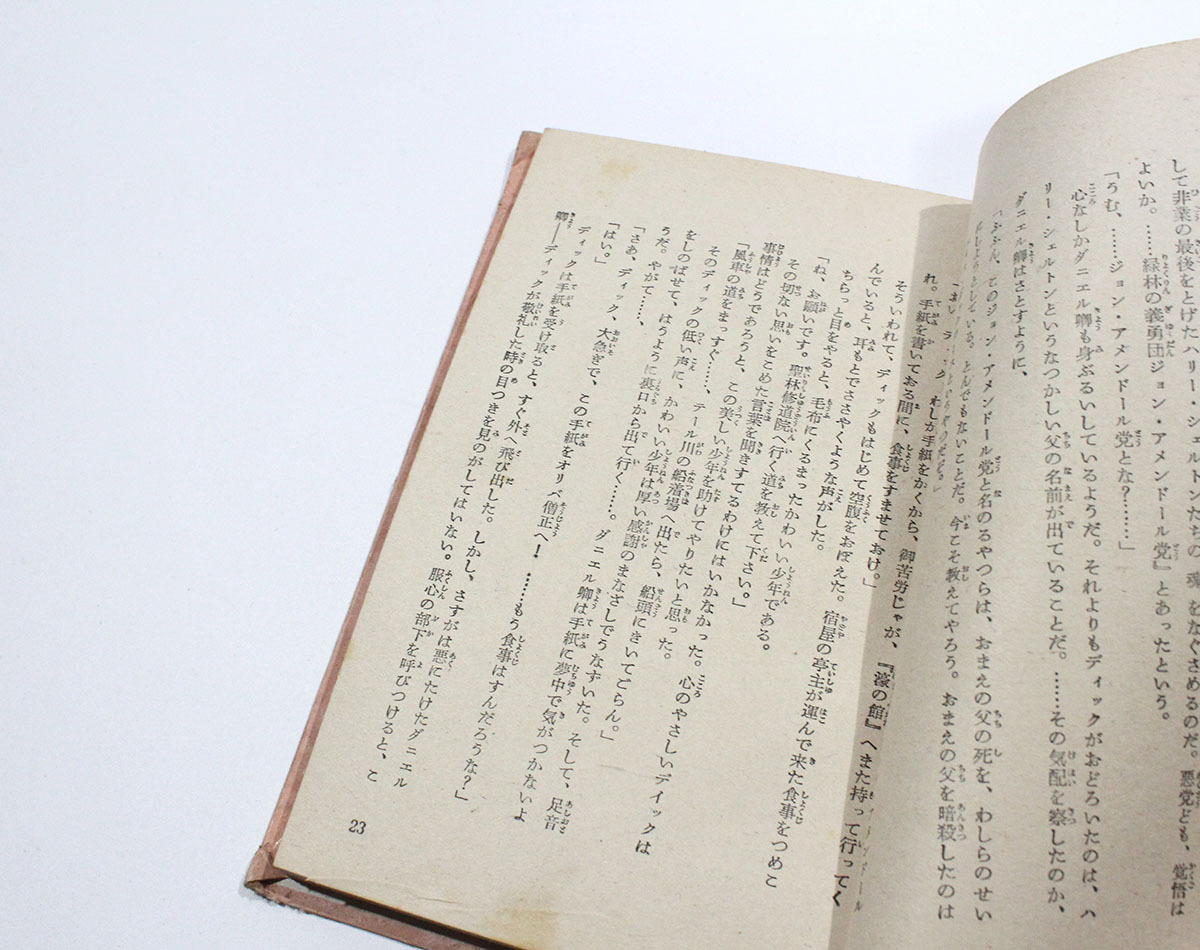 して非業の最後をとげたハリー・シェルトンたちの魂をなぐさめるのだ。悪党ども、覚悟は
よいか。……緑林の義勇団ジョン・アメンドール党』とあったという。
「うむ、……ジョン・アメンドール党とな？……」
心なしかダニエル卿も身ぶるいしているようだ。それよりもディックがおどろいたのは、ハ
リー・シェルトンというなつかしい父の名前が出ていることだ。……その気配を察したのか、
ダニエル卿はさとすように、
ジョン・アメンドール党と名のるやつらは、おまえの父の死を、わしらのせい
にしようとしている。とんでもないことだ。今こそ教えてやろう。おまえの父を暗殺したのは
わしが手紙をかくから、御苦労じゃが、『濠の館』へまた持って行ってく
れ。手紙を書いておる間に、食事をすませておけ。」
そういわれて、ディックもはじめて空腹をおぼえた。宿屋の亭主が運んで来た食事をつめこ
んでいると、耳もとでささやくような声がした。
ちらっと目をやると、毛布にくるまったかわいい少年である。
「ね、お願いです。聖林修道院へ行く道を教えて下さい。」
その切ない思いをこめた言葉を聞きすてるわけにはいかなかった。心のやさしいディックは
事情はどうであろうと、この美しい少年を助けてやりたいと思った。
「風車の道をまっすぐ……、テール川の船着場へ出たら、船頭にきいてごらん。」
そのディックの低い声に、かわいい少年は厚い感謝のまなざしでうなずいた。そして、足音
をしのばせて、はうように裏口から出て行く……。ダニエル卿は手紙に夢中で気がつかないよ
うだ。やがて……、
「さあ、ディック、大急ぎで、この手紙をオリバ僧正へ！……もう食事はすんだろうな？」
「はい。」
ディックは手紙を受け取ると、すぐ外へ飛び出した。しかし、さすがは悪にたけたダニエル
卿――ディックが敬礼した時の目つきを見のがしてはいない。服心の部下を呼びつけると、こ
23